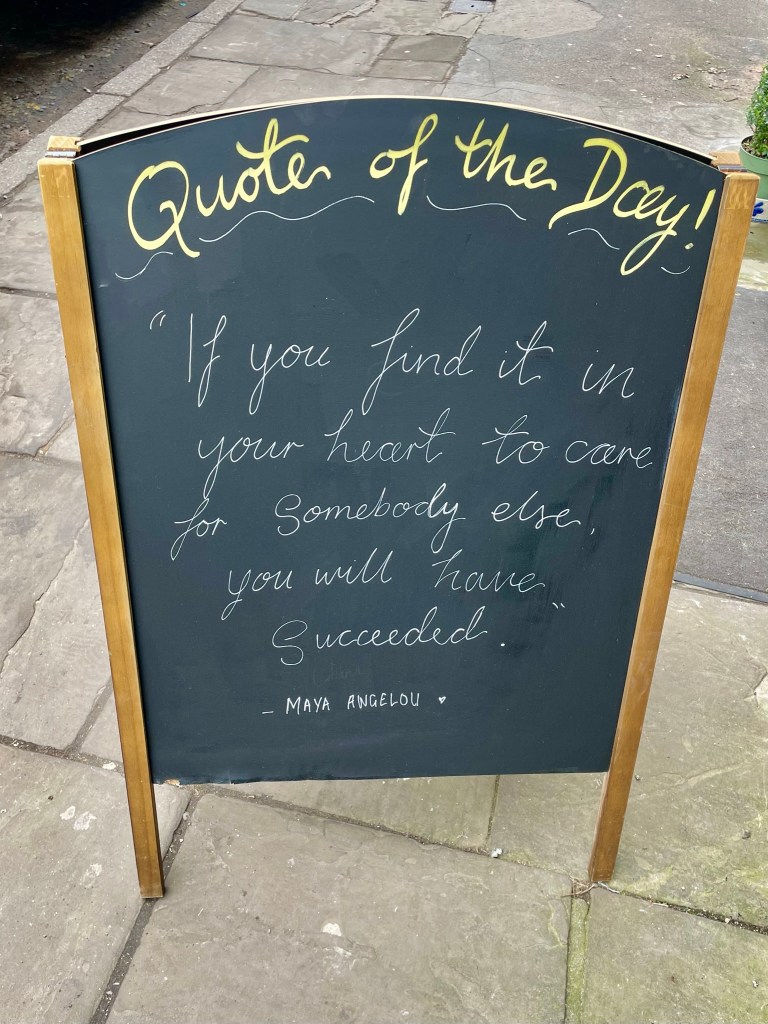 Quote of the Day!
"If you find it in
your heart to care
for Somebody else,
you will have
Succeeded."
- MAYA ANGELOU ♥